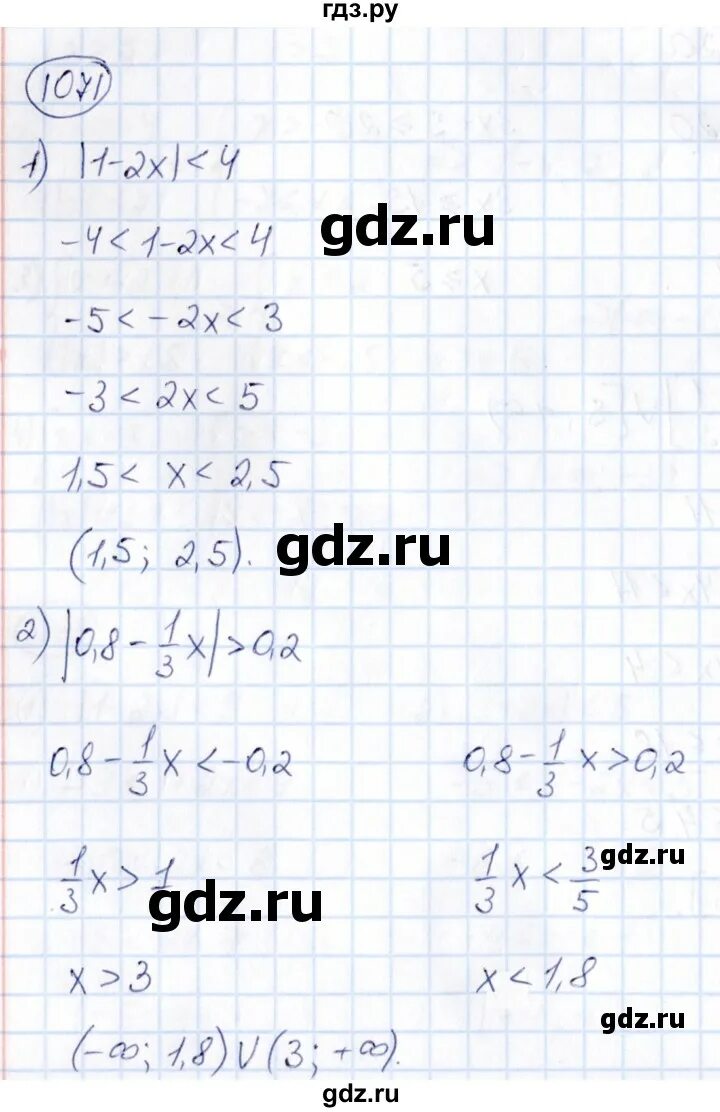 гдз.ру
1071
1) |1-2x|<4
-4<1-2x<4
gdz.ru
-5<-2x<3
-3<2x<5
1,5< x<2,5
(1,5; 2,5).
gdz.ru
2) |0,8-1/3x|>0,2
0,8-1/3x<-0,2
0,8-1/3x>0,2
1/3x>1
1/3x<3/5
gdz.ru
gdz.ru
x>3
x<1,8
gdz.ru
(-∞; 1,8)∪(3; +∞).
gdz.ru